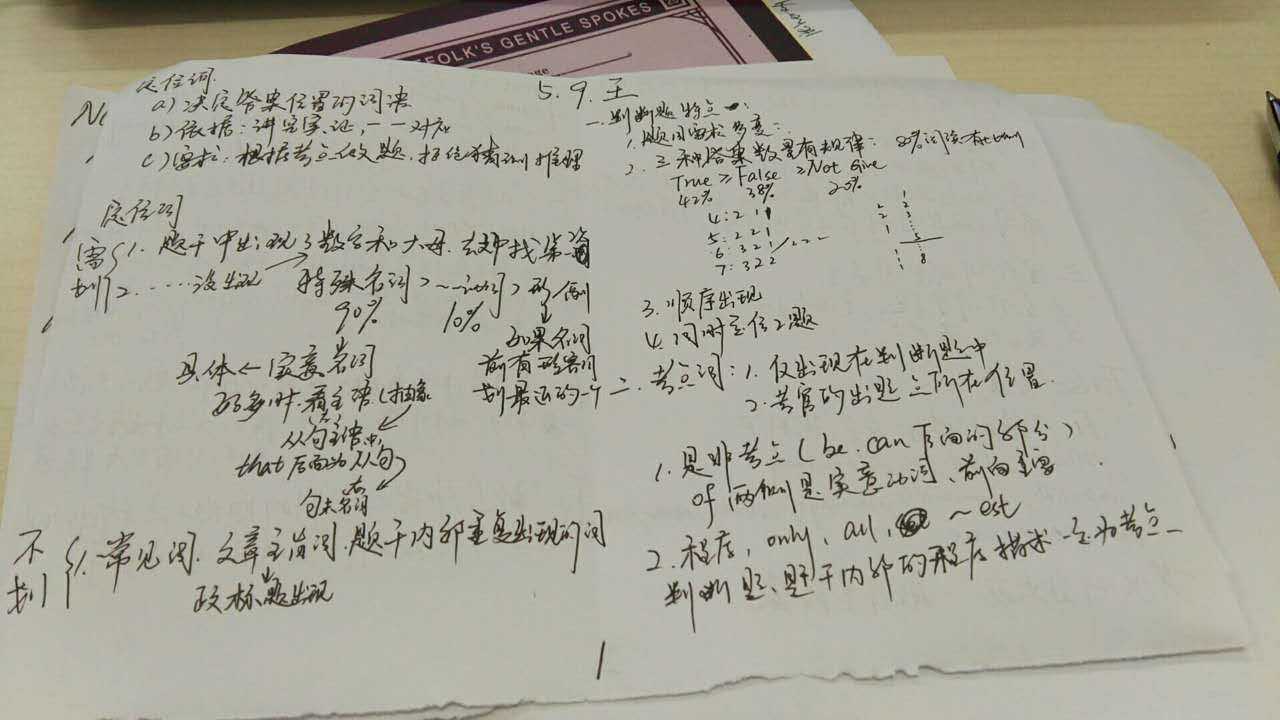 FOLK'S GENTLE SPOKES
定位词
a) 决定答案位置的词语
b) 依据:讲究实证,一一对应
c) 需求:根据考点做题,拒绝猜测推理
定位词
需划
1. 题干中出现了数字和大写,去文中找
2. ……没出现 特殊名词>~动词>形/副
90% 10%
如果名词
前有形容词
划最近的一个
具体←实意名词
(抽象
很多时看主语
从句主语中,
that后面为从句
句末名词
不划
1. 常见词.文章主旨词.题干内部重复出现的词
或标题出现
5.9.王
一.判断题特点:
1. 题目需求多变:
2. 三种答案数量有规律:
True ≥ False ≥ Not Give
42% 38% 20%
4: 2 1 1
5: 2 2 1
6: 3 2 1 / 2 2 2
7: 3 2 2
3. 顺序出现
4. 同时定位2题
二.考点词:1. 仅出现在判断题中
2. 考官的出题点所在位置
1. 是非考点(be.can后面的部分)
of 两侧是实意动词、前向主语
2. 程度,only,all,~est
判断题、题干内部的程度描述一定为考点